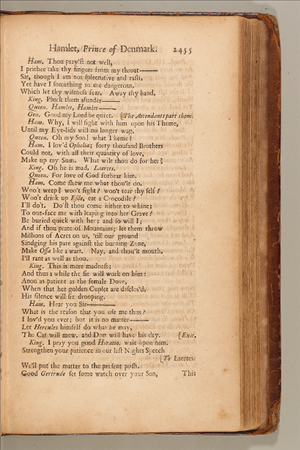 Hamlet, Prince of Denmark. 2455
Ham. Thou pray'st not well,
I prithee take thy fingers from my throat——
Sir, though I am not spleenative and rash,
Yet have I something in me dangerous,
Which let thy wisdom fear. Away thy hand.
King. Pluck them asunder——
Queen. Hamlet, Hamlet——
Gen. Good my Lord be quiet. [The Attendants part them.
Ham. Why, I will fight with him upon this Theme,
Until my Eye-lids will no longer wag.
Queen. Oh my Son! what Theme?
Ham. I lov'd Ophelia; forty thousand Brothers
Could not, with all their quantity of love,
Make up my Sum. What wilt thou do for her?
King. Oh he is mad, Laertes.
Queen. For love of God forbear him.
Ham. Come shew me what thou'lt do.
Woo't weep? woo't fight? woo't tear thy self?
Woo't drink up Esile, eat a Crocodile?
I'll do't. Do'st thou come hither to whine;
To out-face me with leaping into her Grave?
Be buried quick with her; and so will I;
And if thou prate of Mountains; let them throw
Millions of Acres on us, 'till our ground
Sindging his pate against the burning Zone,
Make Ossa like a wart. Nay, and thou'lt mouth,
I'll rant as well as thou.
King. This is meer madness;
And thus a while the fit will work on him:
Anon as patient as the female Dove,
When that her golden Cuplet are disclos'd,
His silence will sit drooping.
Ham. Hear you Sir——
What is the reason that you use me thus?
I lov'd you ever; but it is no matter——
Let Hercules himself do what he may,
The Cat will mew, and Dog will have his day. [Exit.
King. I pray you good Horatio, wait upon him.
Strengthen your patience in our last Nights Speech
[To Laertes.
We'll put the matter to the present push.
Good Gertrude set some watch over your Son,
This